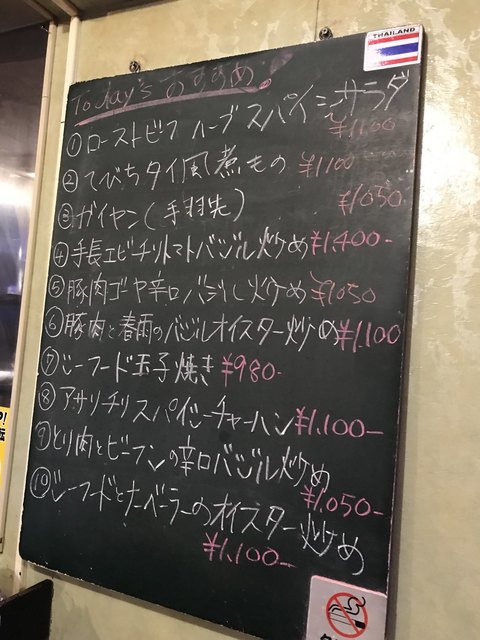 THAILAND
Today's おすすめ!
① ローストビフ ハーブ スパイシーサラダ
¥1,100
② てびちタイ風煮もの ¥1,100
③ ガイヤン(手羽先) ¥1,050
④ 手長エビチリトマトバジル炒め ¥1,400-
⑤ 豚肉ゴーヤ辛口バジル炒め ¥1,050
⑥ 豚肉と春雨のバジルオイスター炒め ¥1,100
⑦ シーフード玉子焼き ¥980-
⑧ アサリチリスパイシーチャーハン ¥1,100-
⑨ とり肉とビーフンの辛口バジル炒め
¥1,050-
⑩ シーフードとナーベーラーのオイスター炒め
¥1,100-